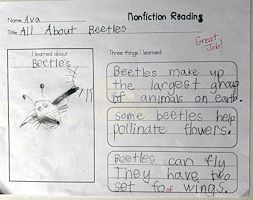 Nonfiction Reading
Name Ava
Title All About Beetles
Great Job!
I learned about
Beetles
Three things I learned:
Beetles make up
the largest group
of animals on earth.
some beetles help
pollinate flowers.
Beetles can fly
They have two
set of wings.